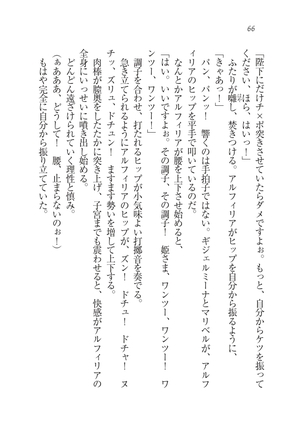 66
「陛下にだけチ×ポ突きさせていたらダメですよぉ。もっと、自分からケツを振って
ください、ほら、はいっ！」
ふたりが囃し、焚きつける。アルフィリアがヒップを自分から振るように、
「きゃあっ！」
パン、パンッ！　響くのは手拍子ではない。ギジェルミーナとマリベルが、アルフ
ィリアのヒップを平手で叩いているのだ。
なんとかアルフィリアが腰を上下させ始めると、
「はい。いいですよぉ。その調子、その調子！　姫さま、ワンツー、ワンツー！　ワ
ンツー、ワンツー！」
調子を合わせ、打たれるヒップが小気味よい打擲音を奏でる。
急き立てられるようにアルフィリアのヒップが、ズン！　ドチュ！　ドチャ！　ヌ
チッ、ズリュ、ドチュン！　ますます勢いを増して上下する。
肉棒が膣奥をしたたかに突き上げ、子宮までも震わせると、快感がアルフィリアの
全身にいっせいに噴き出し始める。
どんどん遠ざけられていく理性と慎み。
（ぁあああ、どうして！　腰、止まらないのぉ！）
もはや完全に自分から振り立てていた。